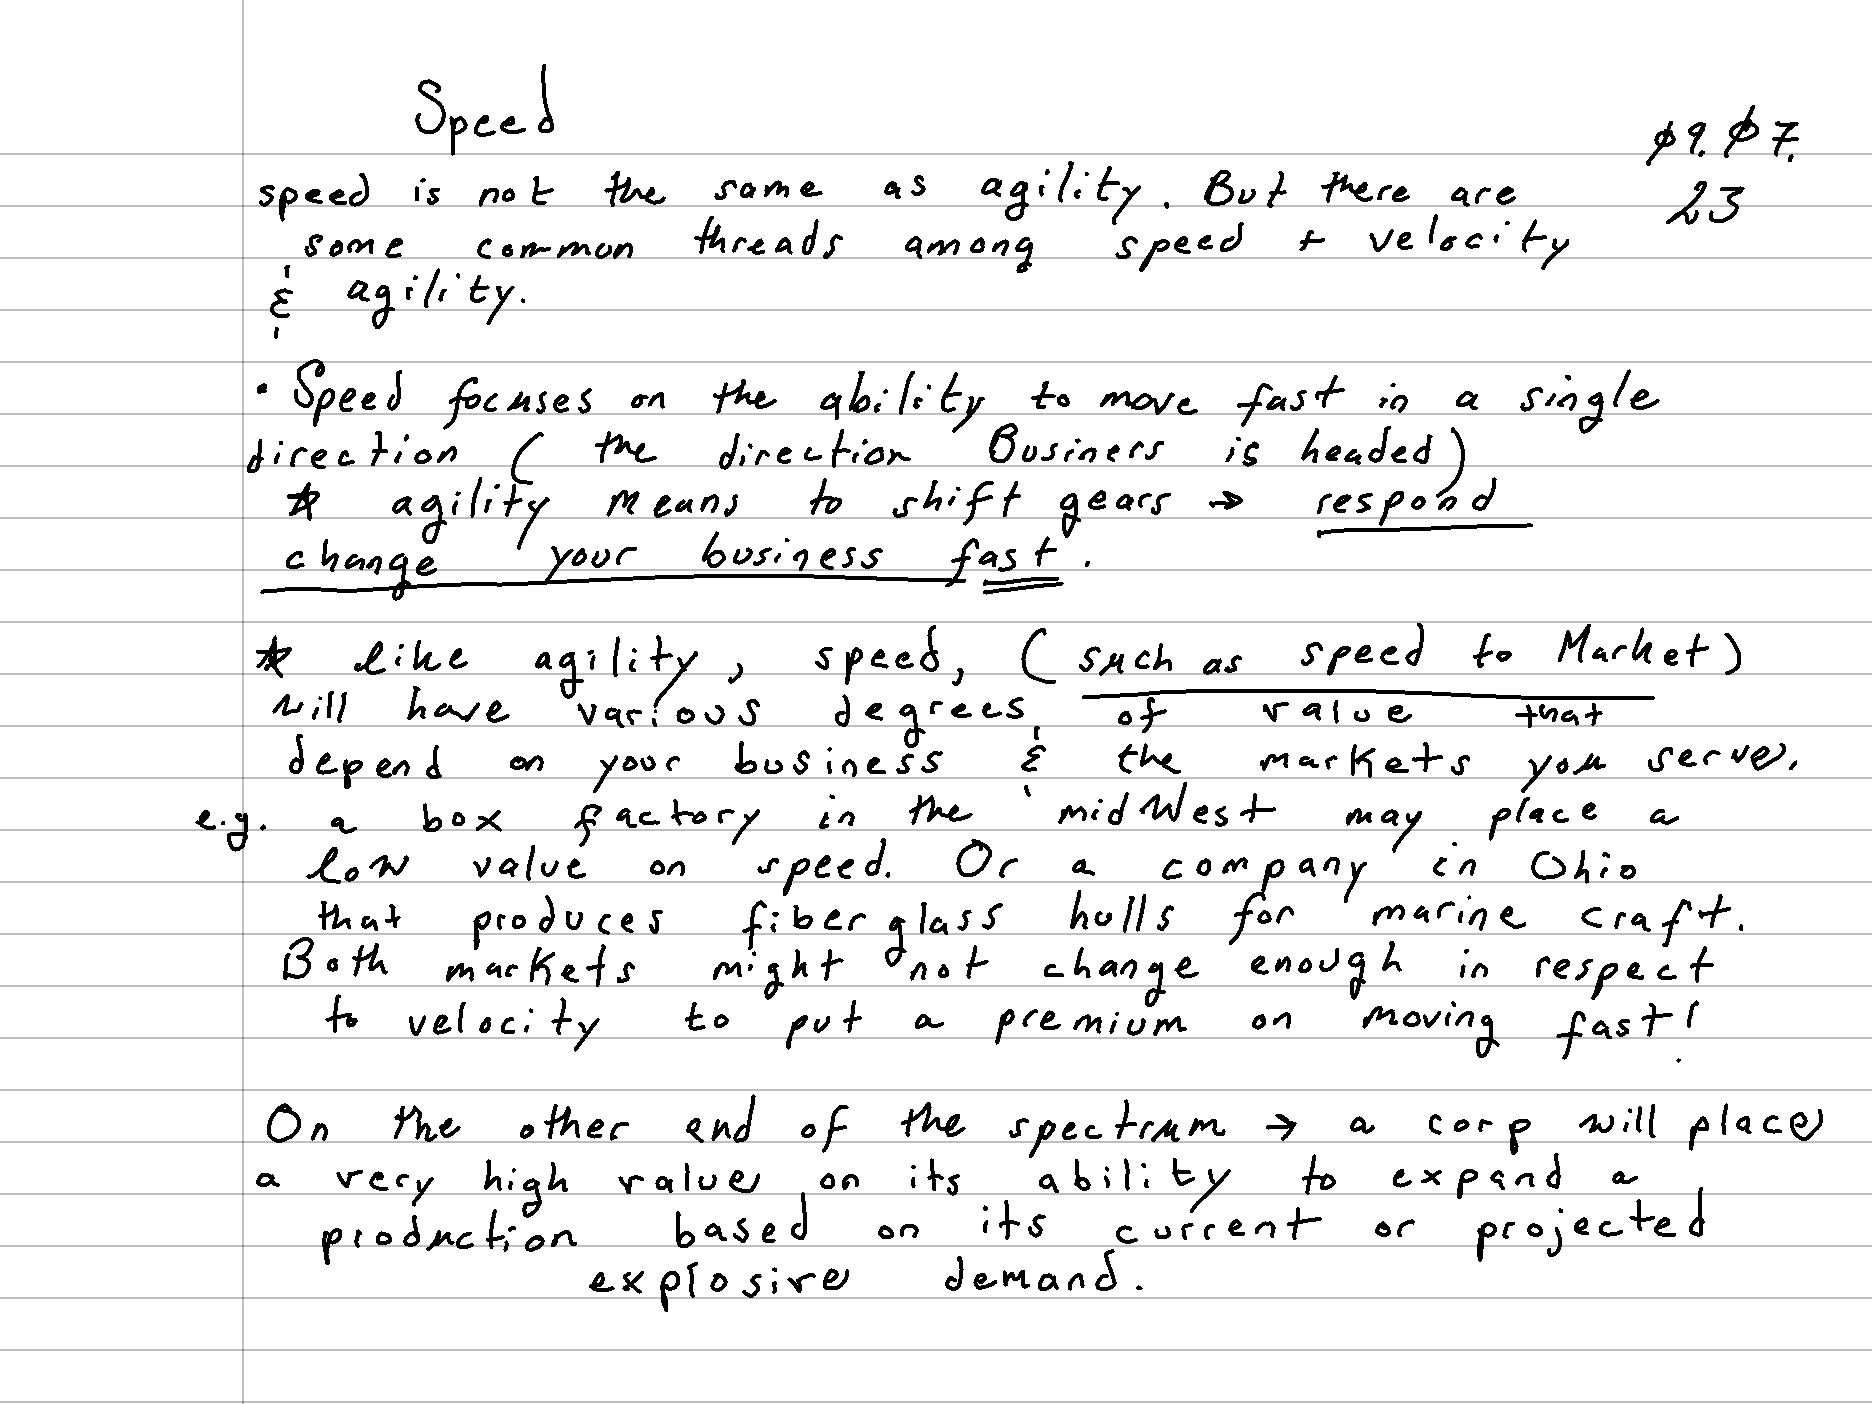 Speed
09.07.
23
speed is not the same as agility. But there are
some common threads among speed + velocity
& agility.
• Speed focuses on the ability to move fast in a single
direction (the direction Business is headed)
* agility means to shift gears → respond
change your business fast.
* like agility, speed, (such as speed to Market)
will have various degrees of value that
depend on your business & the markets you serve.
e.g. a box factory in the midWest may place a
low value on speed. Or a company in Ohio
that produces fiberglass hulls for marine craft.
Both markets might not change enough in respect
to velocity to put a premium on moving fast!
On the other end of the spectrum → a corp will place
a very high value on its ability to expand a
production based on its current or projected
explosive demand.